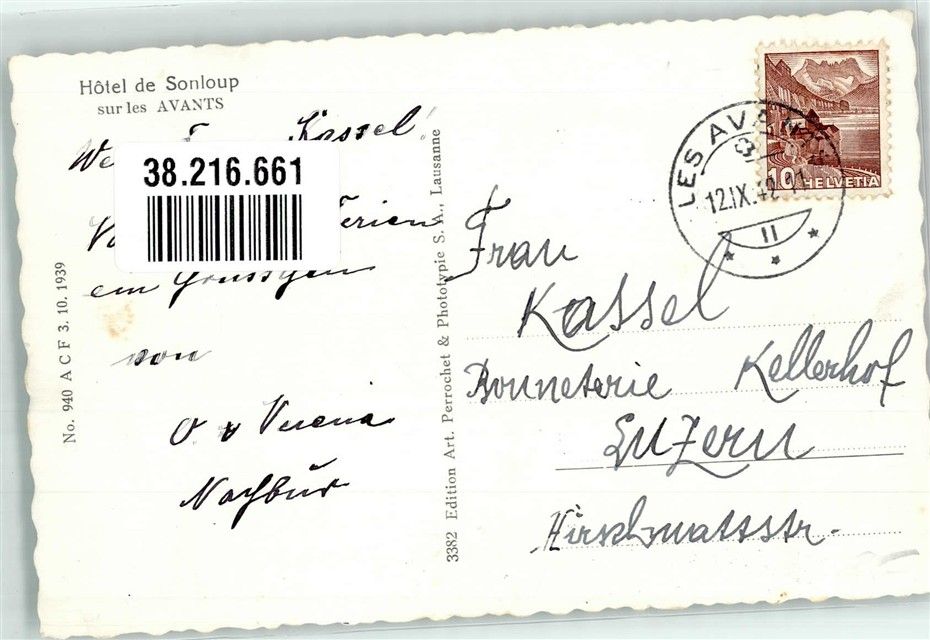 Hôtel de Sonloup
sur les AVANTS
Kassel!
38.216.661
Ferien
ein Grüsschen
von
O v Verena
Nachbur
No. 940 A C F 3. 10. 1939
3382 Edition Art. Perrochet & Phototypie S. A., Lausanne
LES AVANTS
12.IX.42.11
II
10 HELVETIA
Frau
Kassel
Bonneterie Kellerhof
Luzern
Hirschmattstr.